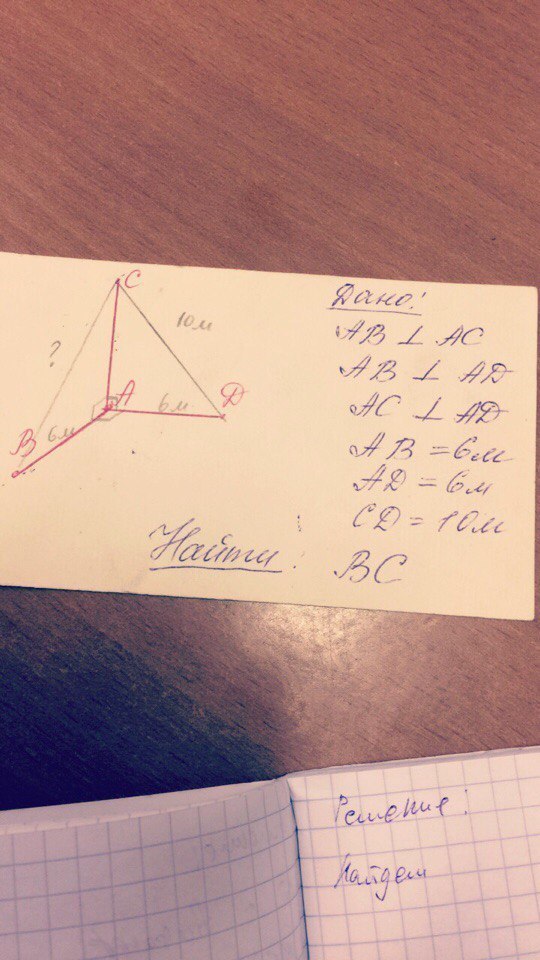 C
10м
?
A
D
6м
B
6м
Дано:
AB ⊥ AC
AB ⊥ AD
AC ⊥ AD
AB = 6м
AD = 6м
CD = 10м
Найти:
BC
Решение:
Найдем